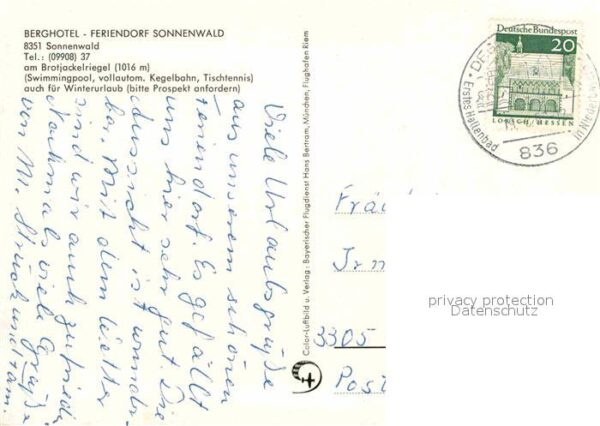 BERGHOTEL - FERIENDORF SONNENWALD
8351 Sonnenwald
Tel.: (09908) 37
am Brotjackelriegel (1016 m)
(Swimmingpool, vollautom. Kegelbahn, Tischtennis)
auch für Winterurlaub (bitte Prospekt anfordern)
Viele Urlaubsgrüße
aus unserem schönen
Feriendorf. Es gefällt
uns hier sehr gut. Die
Aussicht ist wunder-
bar. Mit dem Wetter
sind wir auch zufrieden
Nochmals viele Grüße
von M. u. Fam.
Color-Luftbild u. Verlag: Bayerischer Flugdienst Hans Bertram, München, Flughafen Riem
Deutsche Bundespost
20
LORSCH/HESSEN
836
Erstes Hallenbad
in Niederb
Fräu
3305
Post
privacy protection
Datenschutz